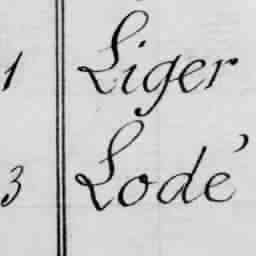 1 Liger
3 Lodé